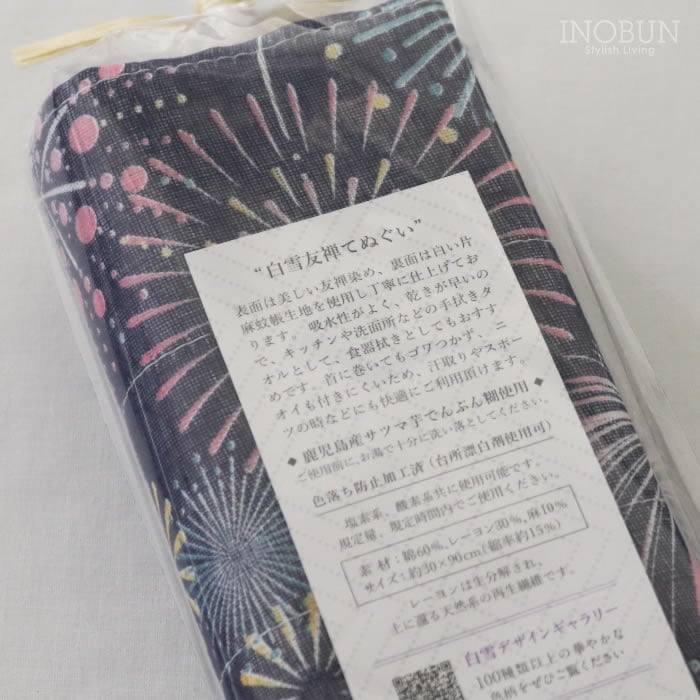 INOBUN
Stylish Living
“白雪友禅てぬぐい”
表面は美しい友禅染め、裏面は白い片
麻蚊帳生地を使用し丁寧に仕上げてお
ります。吸水性がよく、乾きが早いの
で、キッチンや洗面所などの手拭きタ
オルとして、食器拭きとしてもおすす
めです。首に巻いてもゴワつかず、ニ
オイも付きにくいため、汗取りやスポー
ツの時などにも快適にご利用頂けます。
◆ 鹿児島産サツマ芋でんぷん糊使用 ◆
ご使用前に、お湯で十分に洗い落としてください。
色落ち防止加工済（台所漂白剤使用可）
塩素系、酸素系共に使用可能です。
規定量、規定時間内でご使用ください。
素 材：綿60%、レーヨン30%、麻10%
サイズ：約30×90cm（縮率約15%）
レーヨンは生分解され、
土に還る天然系の再生繊維です。
白雪デザインギャラリー
100種類以上の華やかな
色柄をぜひご覧ください